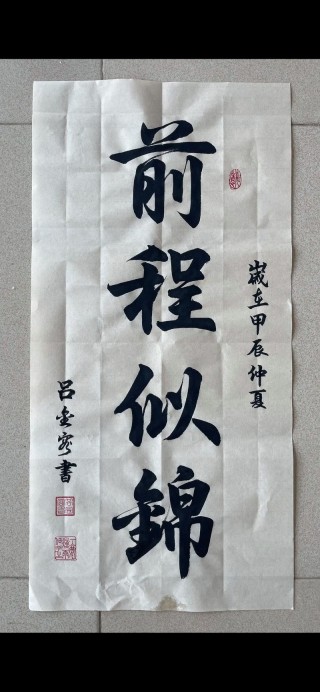 歲在甲辰仲夏
前程似錦
呂金容書